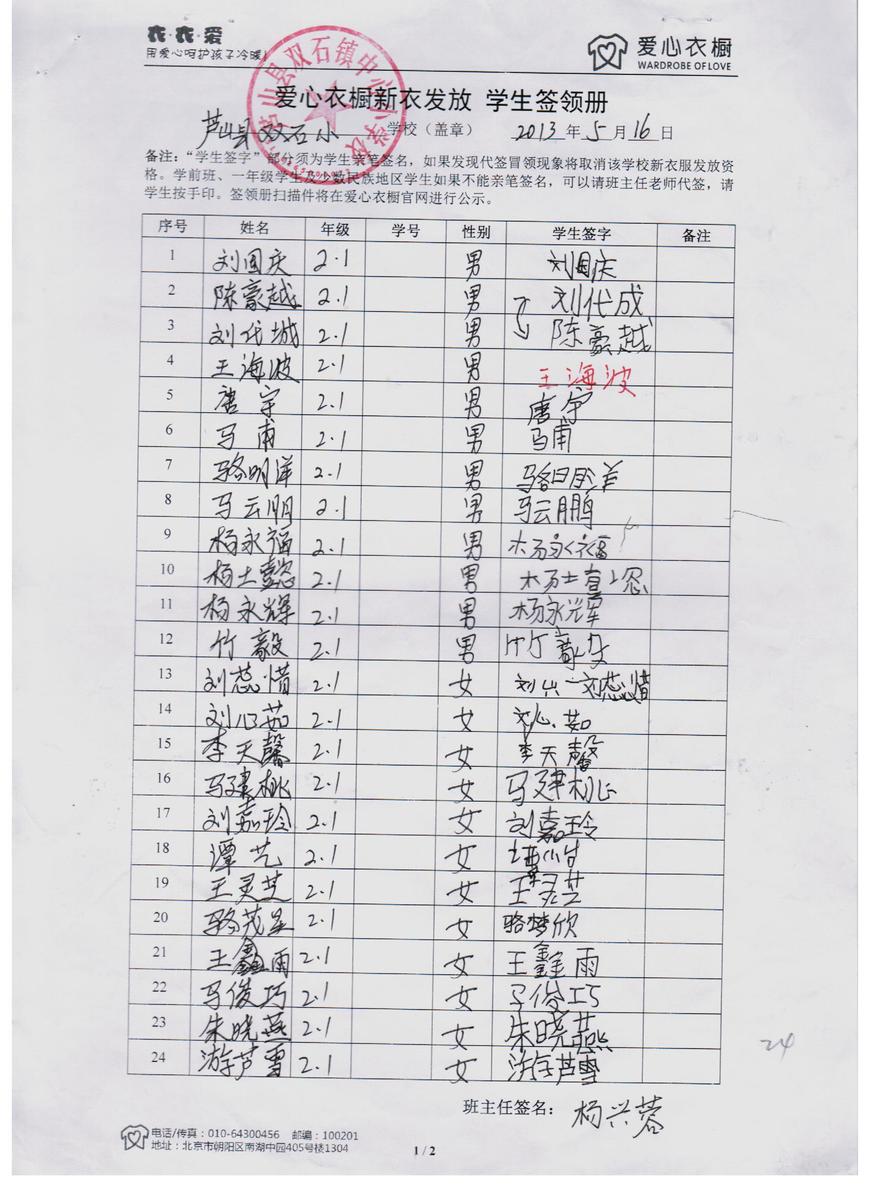 衣·衣·爱
用爱心呵护孩子冷暖!
爱心衣橱
WARDROBE OF LOVE
芦山县双石镇中心小学校
爱心衣橱新衣发放 学生签领册
芦山县双石小 学校（盖章） 2013 年 5 月 16 日
备注：“学生签字”部分须为学生亲笔签名，如果发现代签冒领现象将取消该学校新衣服发放资
格。学前班、一年级学生及少数民族地区学生如果不能亲笔签名，可以请班主任老师代签，请
学生按手印。签领册扫描件将在爱心衣橱官网进行公示。
序号 姓名 年级 学号 性别 学生签字 备注
1 刘国庆 2.1 男 刘国庆
2 陈豪越 2.1 男 刘代成
3 刘代城 2.1 男 陈豪越
4 王海波 2.1 男 王海波
5 唐宇 2.1 男 唐宇
6 马甫 2.1 男 马甫
7 骆明洋 2.1 男 骆明洋
8 马云朋 2.1 男 马云鹏
9 杨永福 2.1 男 杨永福
10 杨士懿 2.1 男 杨士懿
11 杨永辉 2.1 男 杨永辉
12 竹毅 2.1 男 竹毅
13 刘蕊惜 2.1 女 刘蕊惜
14 刘心茹 2.1 女 刘心茹
15 李天馨 2.1 女 李天馨
16 马建桃 2.1 女 马建桃
17 刘嘉玲 2.1 女 刘嘉玲
18 谭艺 2.1 女
19 王灵芝 2.1 女 王灵芝
20 骆茂星 2.1 女 骆梦欣
21 王鑫雨 2.1 女 王鑫雨
22 马俊巧 2.1 女 马俊巧
23 朱晓燕 2.1 女 朱晓燕
24 游芦雪 2.1 女 游芦雪
24
班主任签名： 杨兴蓉
电话/传真：010-64300456 邮编：100201
地址：北京市朝阳区南湖中园405号楼1304
1 / 2